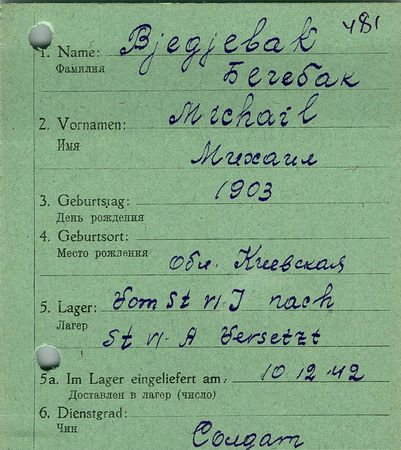 481
1. Name: Bjedjebak
Фамилия Бегебак
2. Vornamen: Michail
Имя
Михаил
3. Geburtstag: 1903
День рождения
4. Geburtsort:
Место рождения Обл. Киевская
5. Lager: Vom St VI-J nach
Лагер St VI-A Versetzt
5a. Im Lager eingeliefert am: 10.12.42
Доставлен в лагер (число)
6. Dienstgrad:
Чин Солдат